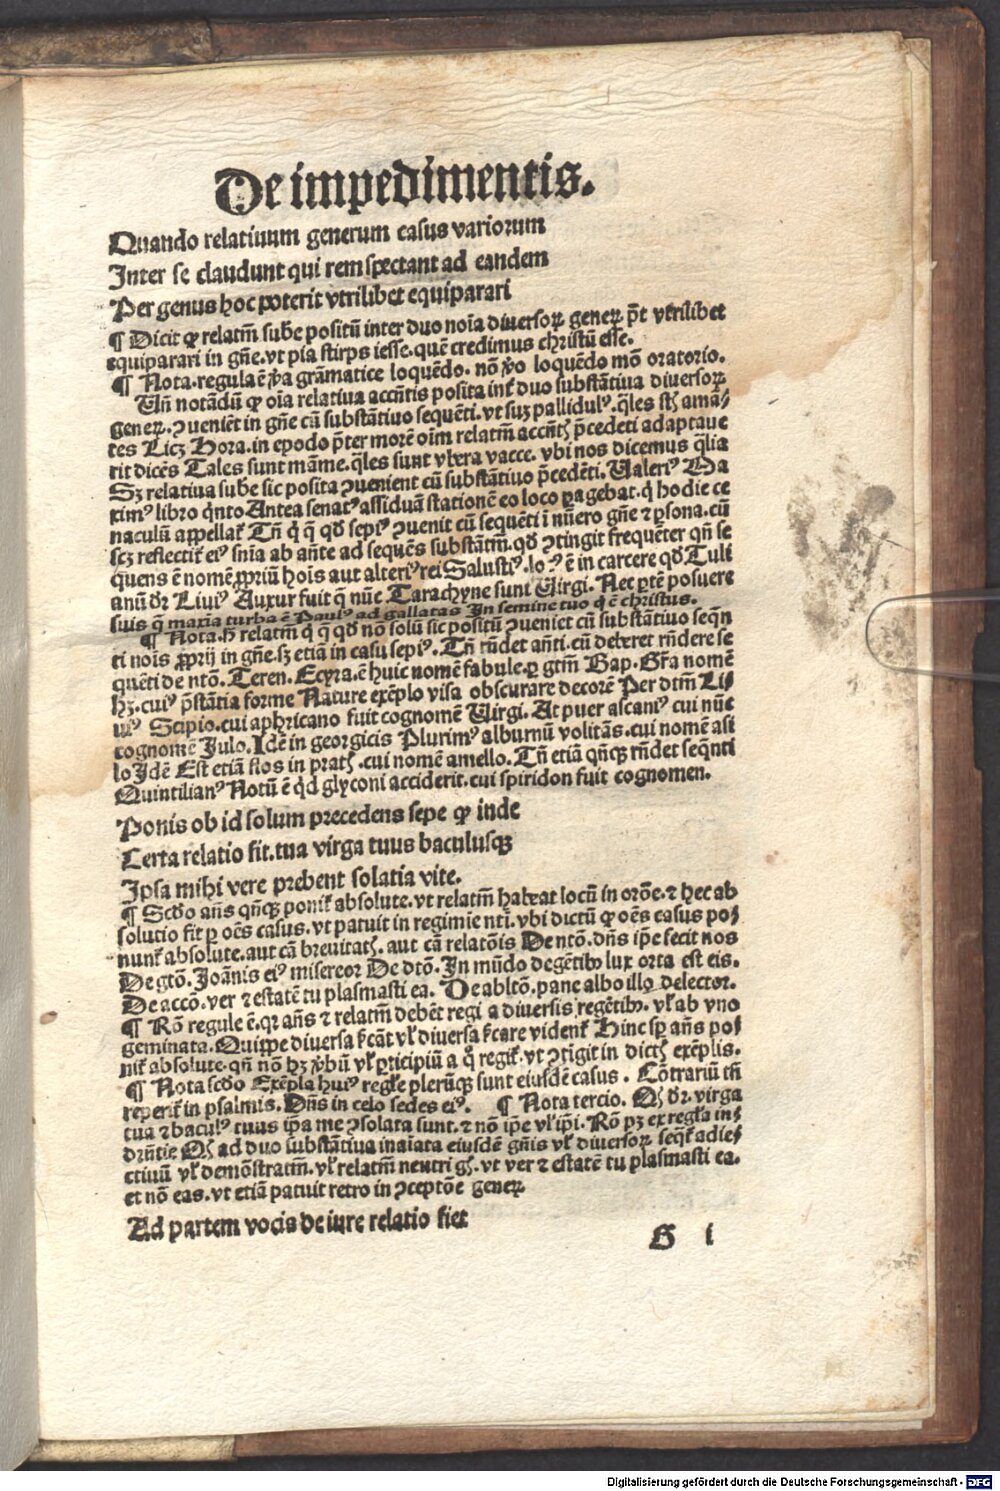 De impedimentis.
Quando relatiuum generum casus variorum
Inter se claudunt qui rem spectant ad eandem
Per genus hoc poterit vtrilibet equiparari
¶ Dicit ꝙ relatm̄ sube positū inter duo noīa diuersoꝝ geneꝝ p̄t vtrilibet
equiparari in gn̄e. vt pia stirps iesse. quē credimus christū esse.
¶ Nota. regula ē ꝟa grāmatice loquēdo. nō ꝟo loquēdo mō oratorio.
Vn̄ notādū ꝙ oīa relatiua accn̄tis posita int̄ duo substātiua diuersoꝝ
geneꝝ. ꝯueniēt in gn̄e cū substātiuo sequēti. vt sūt pallidulꝰ. q̄les
tes Licꝫ Hora. in epodo p̄ter morē oīm relatm̄ accn̄tꝭ p̄cedēti adaptaue
rit dicēs Tales sunt māme. q̄les sunt vbera vacce. vbi nos dicemus q̄lia
Sꝫ relatiua sube sic posita ꝯuenient cū substātiuo p̄cedēti. Ualeriꝰ Ma
ximꝰ libro q̄nto Antea senatꝰ assiduā stationē eo loco ꝑagebat. q̇ hodie ce
naculū appellat̄ Tn̄ q̇ q̄ qd̄ sepiꝰ ꝯuenit cū sequēti ī nūero gn̄e ⁊ ꝑsona. cū
scꝫ reflectit̄ eiꝰ sn̄ia ab an̄te ad sequēs substātm̄. qd̄ ꝯtingit frequēter qn̄ se
quens ē nomē ꝓpriū hoīs aut alteriꝰ rei Salustiꝰ. ē in carcere qd̄ Tuli
anū dr̄ Liuiꝰ Auxur fuit q̄ nūc Tarachyne sunt Uirgi. Nec ꝑtē posuere
suis q̄ maxīa turba ē Paulꝰ ad gallatas In semine tuo q̇ ē christus.
¶ Nota. relatm̄ q̇ q̄ qd̄ nō solū sic positū ꝯueniet cū substātiuo seqn̄
ti noīs ꝓprij in gn̄e. sꝫ etiā in casu sepiꝰ. Tn̄ rn̄det an̄ti. cū deberet rn̄dere se
quēti de ntō. Teren. Ecyra. ē huic nomē fabule. ꝑ gtm̄ Bap. Gr̄a nomē
hꝫ. cuiꝰ p̄stātia forme Nature exēplo visa obscurare decorē Per dtm̄ Li⸗
uiꝰ Scipio. cui aphricano fuit cognomē Uirgi. At puer ascaniꝰ cui nūc
cognomē Julo. Idē in georgicis Plurimꝰ alburnū volitās. cui nomē asi
lo Idē Est etiā flos in pratꝭ. cui nomē amello. Tn̄ etiā qn̄qꝫ rn̄det seqn̄ti
Quintilianꝰ Notū ē q̇d glyconi acciderit. cui spiridon fuit cognomen.
Ponis ob id solum precedens sepe ꝙ inde
Certa relatio fit. tua virga tuus baculusqꝫ
Ipsa mihi vere prebent solatia vite.
¶ Scd̄o an̄s qn̄qꝫ ponit̄ absolute. vt relatm̄ habeat locū in orōe. ⁊ hec ab
solutio fit ꝑ oēs casus. vt patuit in regimie nti. vbi dictū ꝙ oēs casus po⸗
nunt̄ absolute. aut cā breuitatꝭ. aut cā relatōis De ntō. dn̄s ip̄e fecit nos
De gtō. Joānis eiꝰ misereor De dtō. In mūdo degētibꝰ lux orta est eis.
De accō. ver ⁊ estatē tu plasmasti ea. De abltō. pane albo illo delector.
¶ Rō regule ē. qꝛ an̄s ⁊ relatm̄ debēt regi a diuersis regētibꝰ. vl̄ ab vno
geminata. Quippe diuersa vl̄ diuersa vident̄ Hinc an̄s po⸗
nit̄ absolute. qn̄ nō hꝫ ꝟbū vl̄ ꝑticipiū a q̊ regit̄. vt ꝯtigit in dictꝭ exēplis.
¶ Nota scd̄o Exēpla huiꝰ regl̄e plerūqꝫ sunt eiusdē casus. Cōtrariū tn̄
reperit̄ in psalmis. Dn̄s in celo sedes eiꝰ. ¶ Nota tercio. dr̄. virga
tua ⁊ baculꝰ tuus ip̄a me ꝯsolata sunt. ⁊ nō ip̄e vl̄ ip̄i. Rō pꝫ ex regl̄a in⸗
drn̄tie ad duo substātiua inaīata eiusdē gn̄is vl̄ diuersoꝝ seqt̄ adie⸗
ctiuū vl̄ demōstratm̄. vl̄ relatm̄ neutri gn̄. vt ver ⁊ estatē tu plasmasti ea.
et nō eas. vt etiā patuit retro in ꝯceptōe geneꝝ
Ad partem vocis de iure relatio fiet
G i
Digitalisierung gefördert durch die Deutsche Forschungsgemeinschaft - DFG